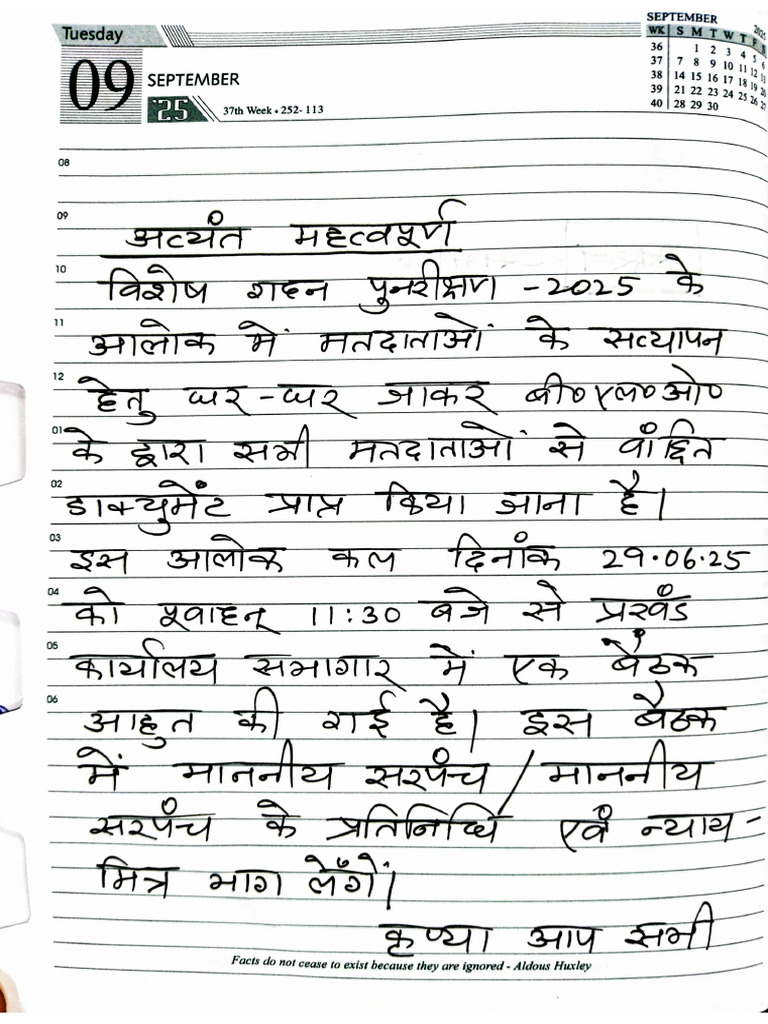 Tuesday
09
SEPTEMBER
'25
37th Week • 252- 113
SEPTEMBER 2025
WK S M T W T F S
36 1 2 3 4 5 6
37 7 8 9 10 11 12 13
38 14 15 16 17 18 19 20
39 21 22 23 24 25 26 27
40 28 29 30
08
09
अत्यंत महत्वपूर्ण
10
विशेष गहन पुनरीक्षण -2025 के
11
आलोक में मतदाताओं के सत्यापन
12
हेतु घर-घर जाकर बी०एल०ओ०
01
के द्वारा सभी मतदाताओं से वांछित
02
डाक्युमेंट प्राप्त किया जाना है।
03
इस आलोक कल दिनांक 29.06.25
04
को पूवाहन् 11:30 बजे से प्रखंड
05
कार्यालय सभागार में एक बैठक
06
आहुत की गई है। इस बैठक
में माननीय सरपंच / माननीय
सरपंच के प्रतिनिधि एवं न्याय-
मित्र भाग लेंगें।
कृप्या आप सभी
Facts do not cease to exist because they are ignored - Aldous Huxley